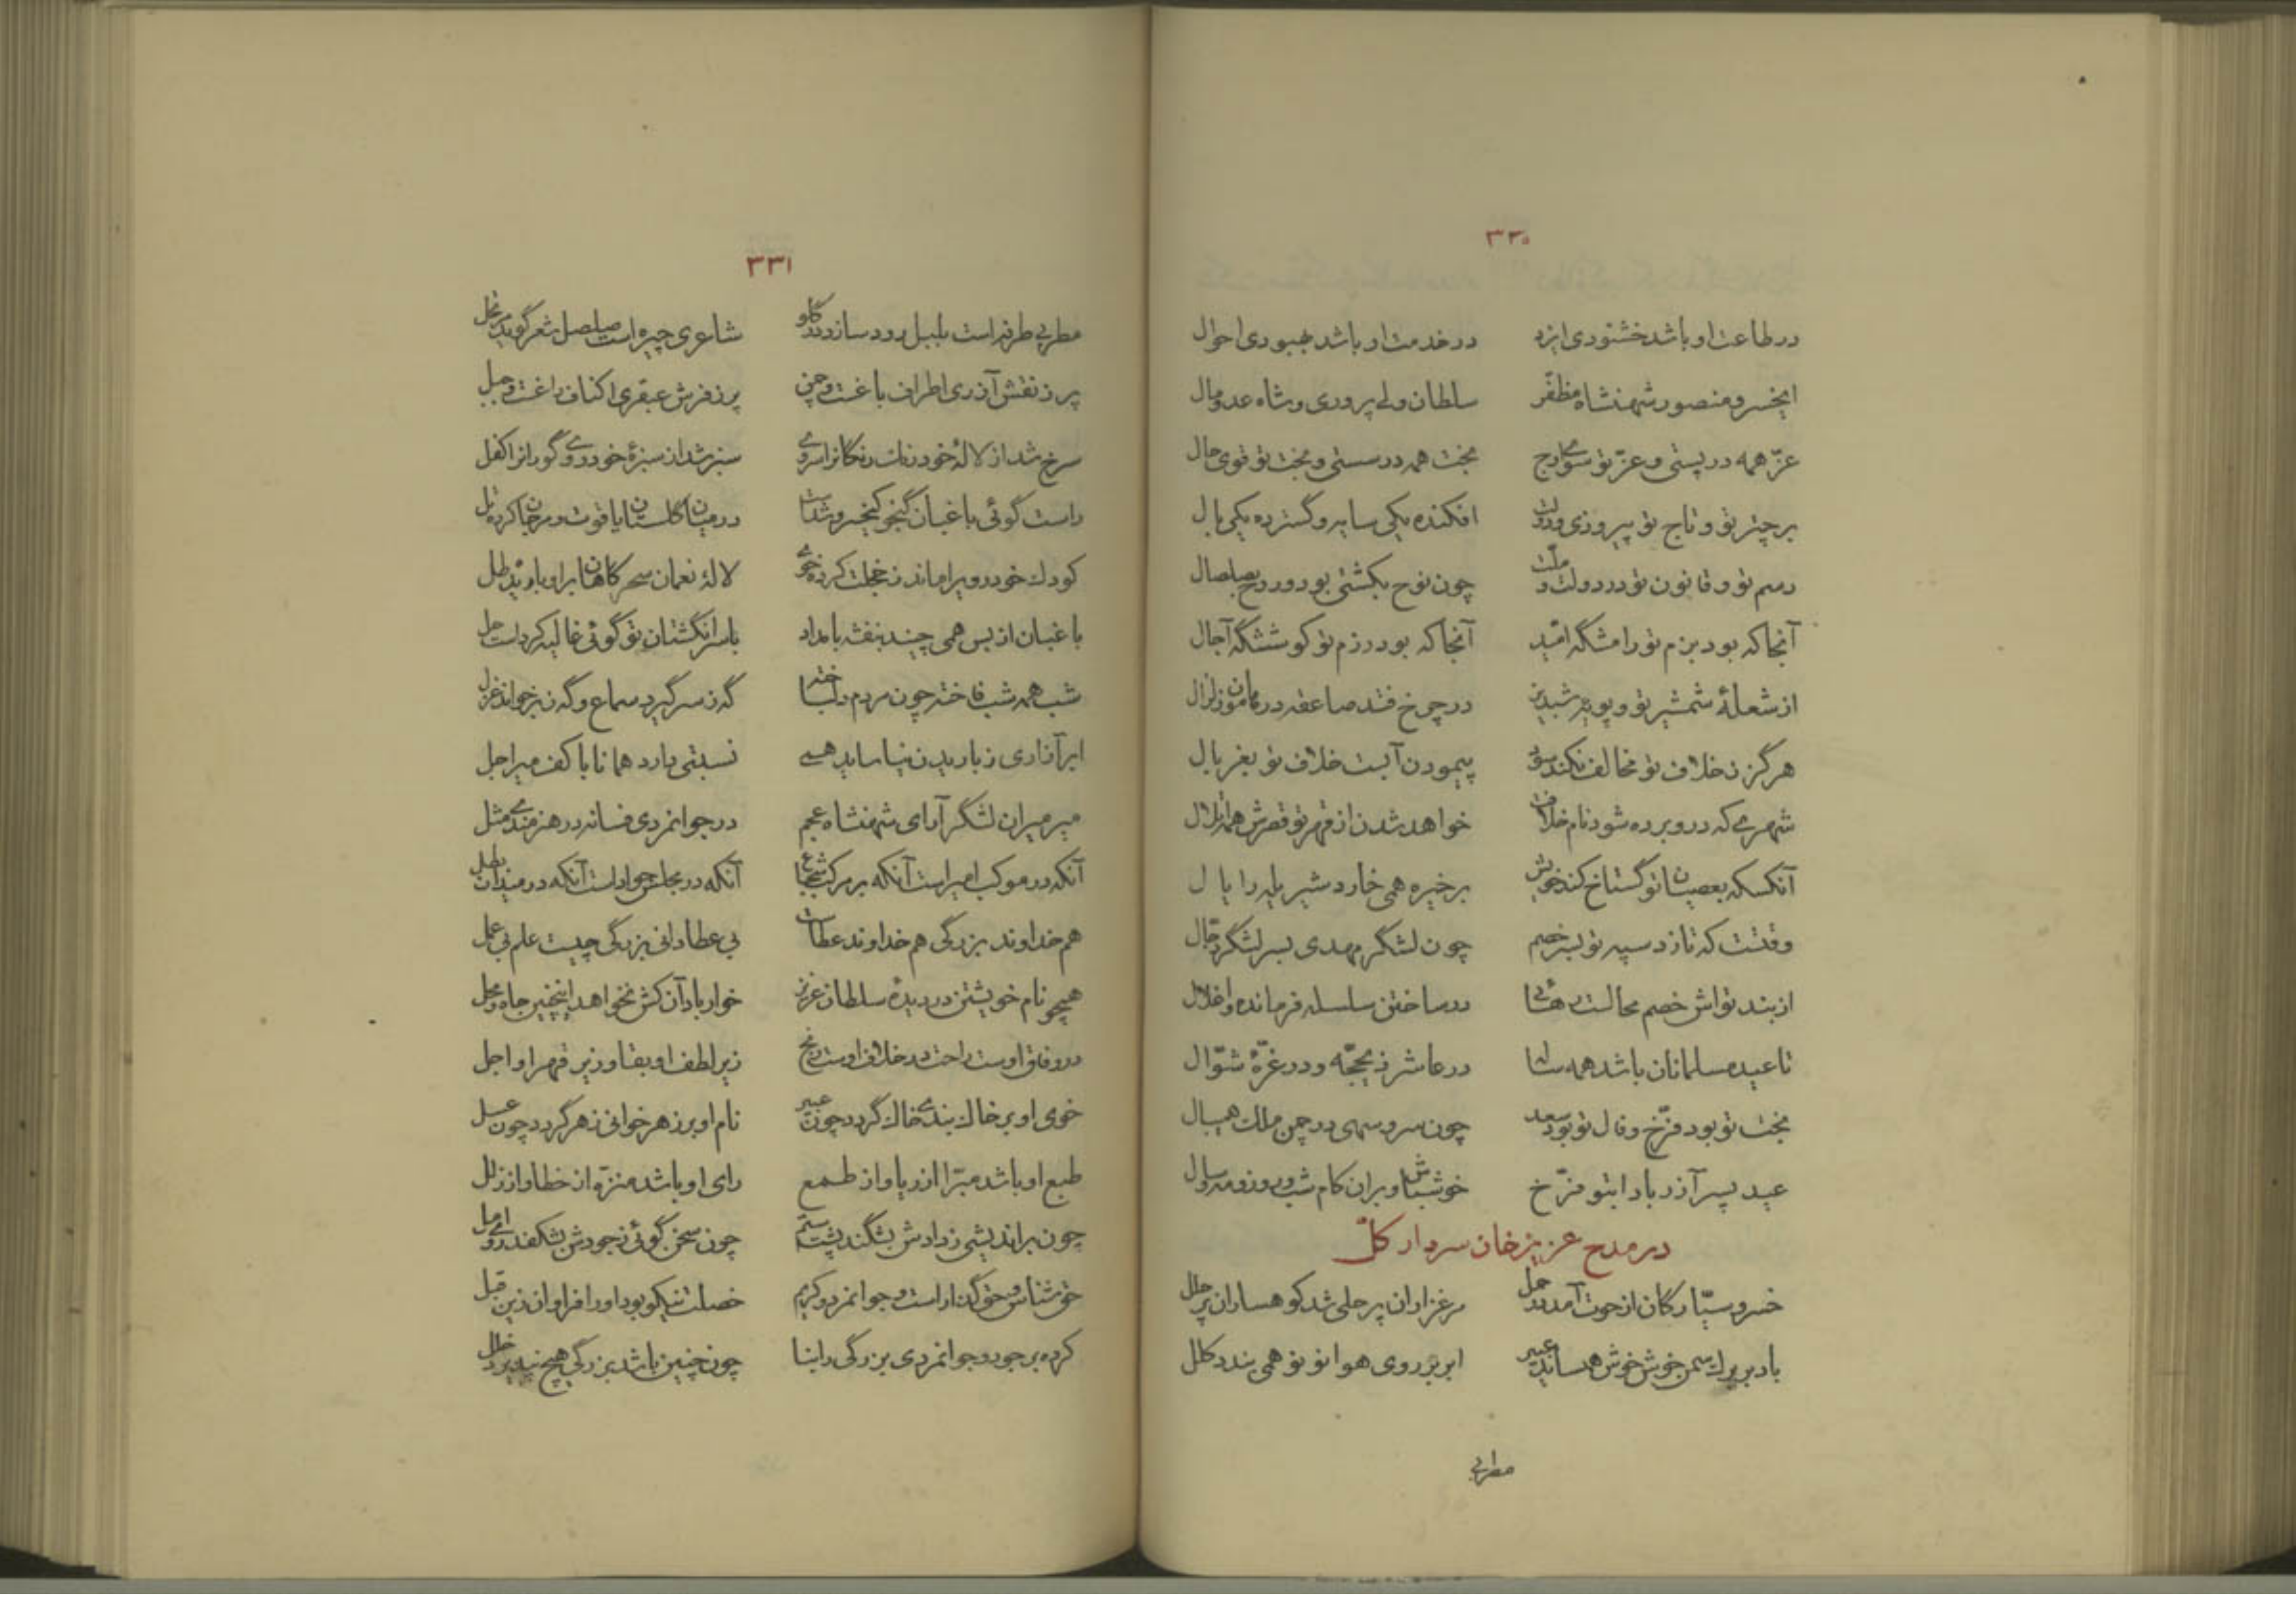 ۳۳۰
در طاعت او باشد خشنودی ایزد در خدمت او باشد بهبودی احوال
ایخسرو منصور شهنشاه مظفّر سلطان ولی پروری و شاه عدومال
عزّ همه در پستی و عزّ تو سوی اوج بخت همه در سستی و بخت تو قوی حال
بر چتر تو و تاج تو پیروزی و دولت افکنده یکی سایه و گسترده یکی بال
رسم تو و قانون تو در دولت و ملّت چون نوح بکشتی بود و روح بصلصال
آنجا که بود بزم تو رامشگه امّید آنجا که بود رزم تو کوششگه آجال
از شعلهٔ شمشیر تو و پویهٔ شبدیز در چرخ فتد صاعقه در هامون زلزال
هرگز ز خلاف تو مخالف نکند سود پیمودن آبست خلاف تو بغربال
شهری که درو برده شود نام خلافت خواهد شدن از قهر تو قصرش همه اتلال
آنکسکه بعصیان تو گستاخ کند خویش بر خیره همی خارد شیر یله را یال
وقتست که تازد سپه تو بسر خصم چون لشگر مهدی بسر لشگر دجّال
از بند تو اش خصم محالست رهائی در ساختن سلسله فرمانده و اغلال
تا عید مسلمانان باشد همه ساله در عاشر ذیحجّه و در غرّهٔ شوّال
بخت تو بود فرّخ و فال تو بود سعد چون سرو سهی در چمن ملک همی بال
عید پسر آزر بادا بتو فرّخ خوش باش و بران کام شب و روز و مه و سال
در مدح عزیز خان سردار کلّ
خسرو سیّارگان از حوت آمد در حمل مرغزاران پر حلی شد کوهساران پر حلل
باد بر برگ سمن خوش خوش همی ساید عبیر ابر بر روی هوا نو نو همی بندد کلل
مطربی
۳۳۱
مطربی طرفه است بلبل رود سازد در گلو شاعری چیره است صلصل شعر گوید مرتجل
پر ز نقش آذری اطراف باغست و چمن پر ز فرش عبقری اکناف راغست و جبل
سرخ شد از لالهٔ خودرنگ رنگانرا سروی سبز شد از سبزهٔ خودروی گورانرا کفل
راست گوئی باغبان گنجور کیخسرو شدست در میان گلستان یاقوت و مرجان کرده تل
کودک خودرو برا ماند ز خجلت کرده خوی لالهٔ نعمان سحرگاهان برا و باریده طل
باغبان از بس همی چیند بنفشه بامداد با سر انگشتان تو گوئی غالیه کرداست حل
شب همه شب فاخته چون مردم دلباخته گه ز سر گیرد سماع و گه ز بر خواند غزل
ابر آزاری ز باریدن نیاساید همی نسبتی دارد همانا با کف میر اجل
میر میران لشگر آرای شهنشاه عجم در جوانمردی فسانه در هنرمندی مثل
آنکه در موکب امیر است آنکه بر مرکب شجاع آنکه در مجلس جواداست آنکه در میدان بطل
هم خداوند بزرگی هم خداوند عطاست بی عطا دانی بزرگی چیست علم بی عمل
همچو نام خویشتن در دیدهٔ سلطان عزیز خوار باد آن کش نخواهد اینچنین جاه و محل
در وفاق اوست راحت در خلاف اوست رنج زیر لطف او بقا و زیر قهر او اجل
خوی او بر خاک بندی خاک گردد چون عبیر نام او بر زهر خوانی زهر گردد چون عسل
طبع او باشد مبرّا از ریا و از طمع رای او باشد منزّه از خطا و از زلل
چون براندیشی ز دادش بشگند پشت ستم چون سخن گوئی ز جودش بشکفد روی امل
حق شناس و حق گذار است و جوانمرد و کریم خصلت نیکو بود او را فراوان زین قبل
کرده بر جود و جوانمردی بزرگی را بنا چون چنین باشد بزرگی هیچ نپذیرد خلل